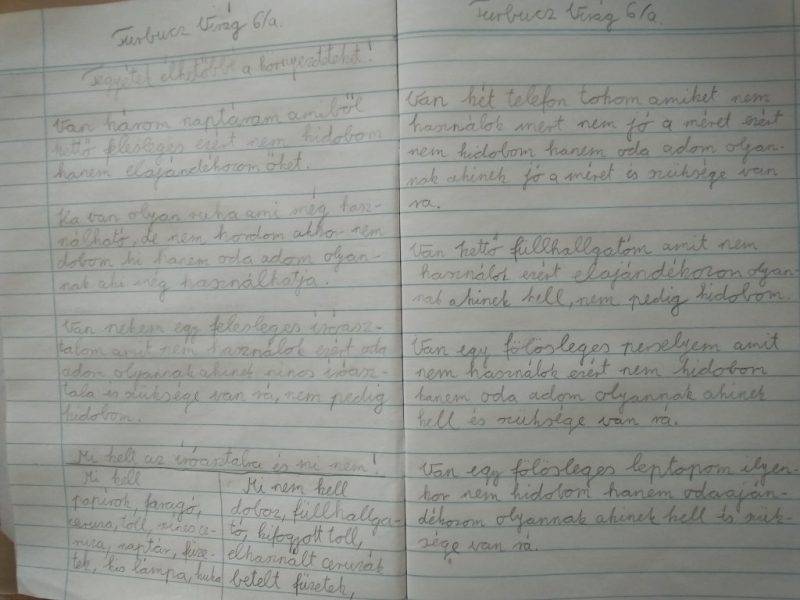 Furbucz Virág 6/a.
Tegyétel élhetőbbé a környezeteket!
Van három naptáram amiből
kettő flesleges ezért nem kidobom
hanem elajándékozom őket.
Ha van olyan ruha ami még hasz-
nálható, de nem hordom akko nem
dobom ki hanem oda adom olyan-
nak aki még használhatja.
Van nekem egy felesleges íróasz-
talom amit nem használok ezért oda
adom olyannak akinek nincs íróasz-
tala is szüksége van rá, nem pedig
kidobom.
Mi kell az íróasztalba és mi nem!
Mi kell
papírok, faragó,
ceruza, toll, színes ce-
ruza, naptár, füze-
tek, kis lámpa, kuka
Mi nem kell
doboz, füllhallga-
tó, kifogyott toll,
elhasznált ceruzák
betelt füzetek,
Furbucz Virág 6/a.
Van hét telefon tokom amiket nem
használok mert nem jó a méret ezért
nem kidobom hanem oda adom olyan-
nak akinek jó a méret és szüksége van
rá.
Van kettő füllhallgatóm amit nem
használok ezért elajándékozom olyan-
nak akinek kell, nem pedig kidobom.
Van egy fölösleges perselyem amit
nem használok ezért nem kidobom
hanem oda adom olyannak akinek
kell és szüksége van rá.
Van egy fölösleges leptopom ilyen-
kor nem kidobom hanem odaaján-
dékozom olyannak akinek kell is szük-
sége van rá.